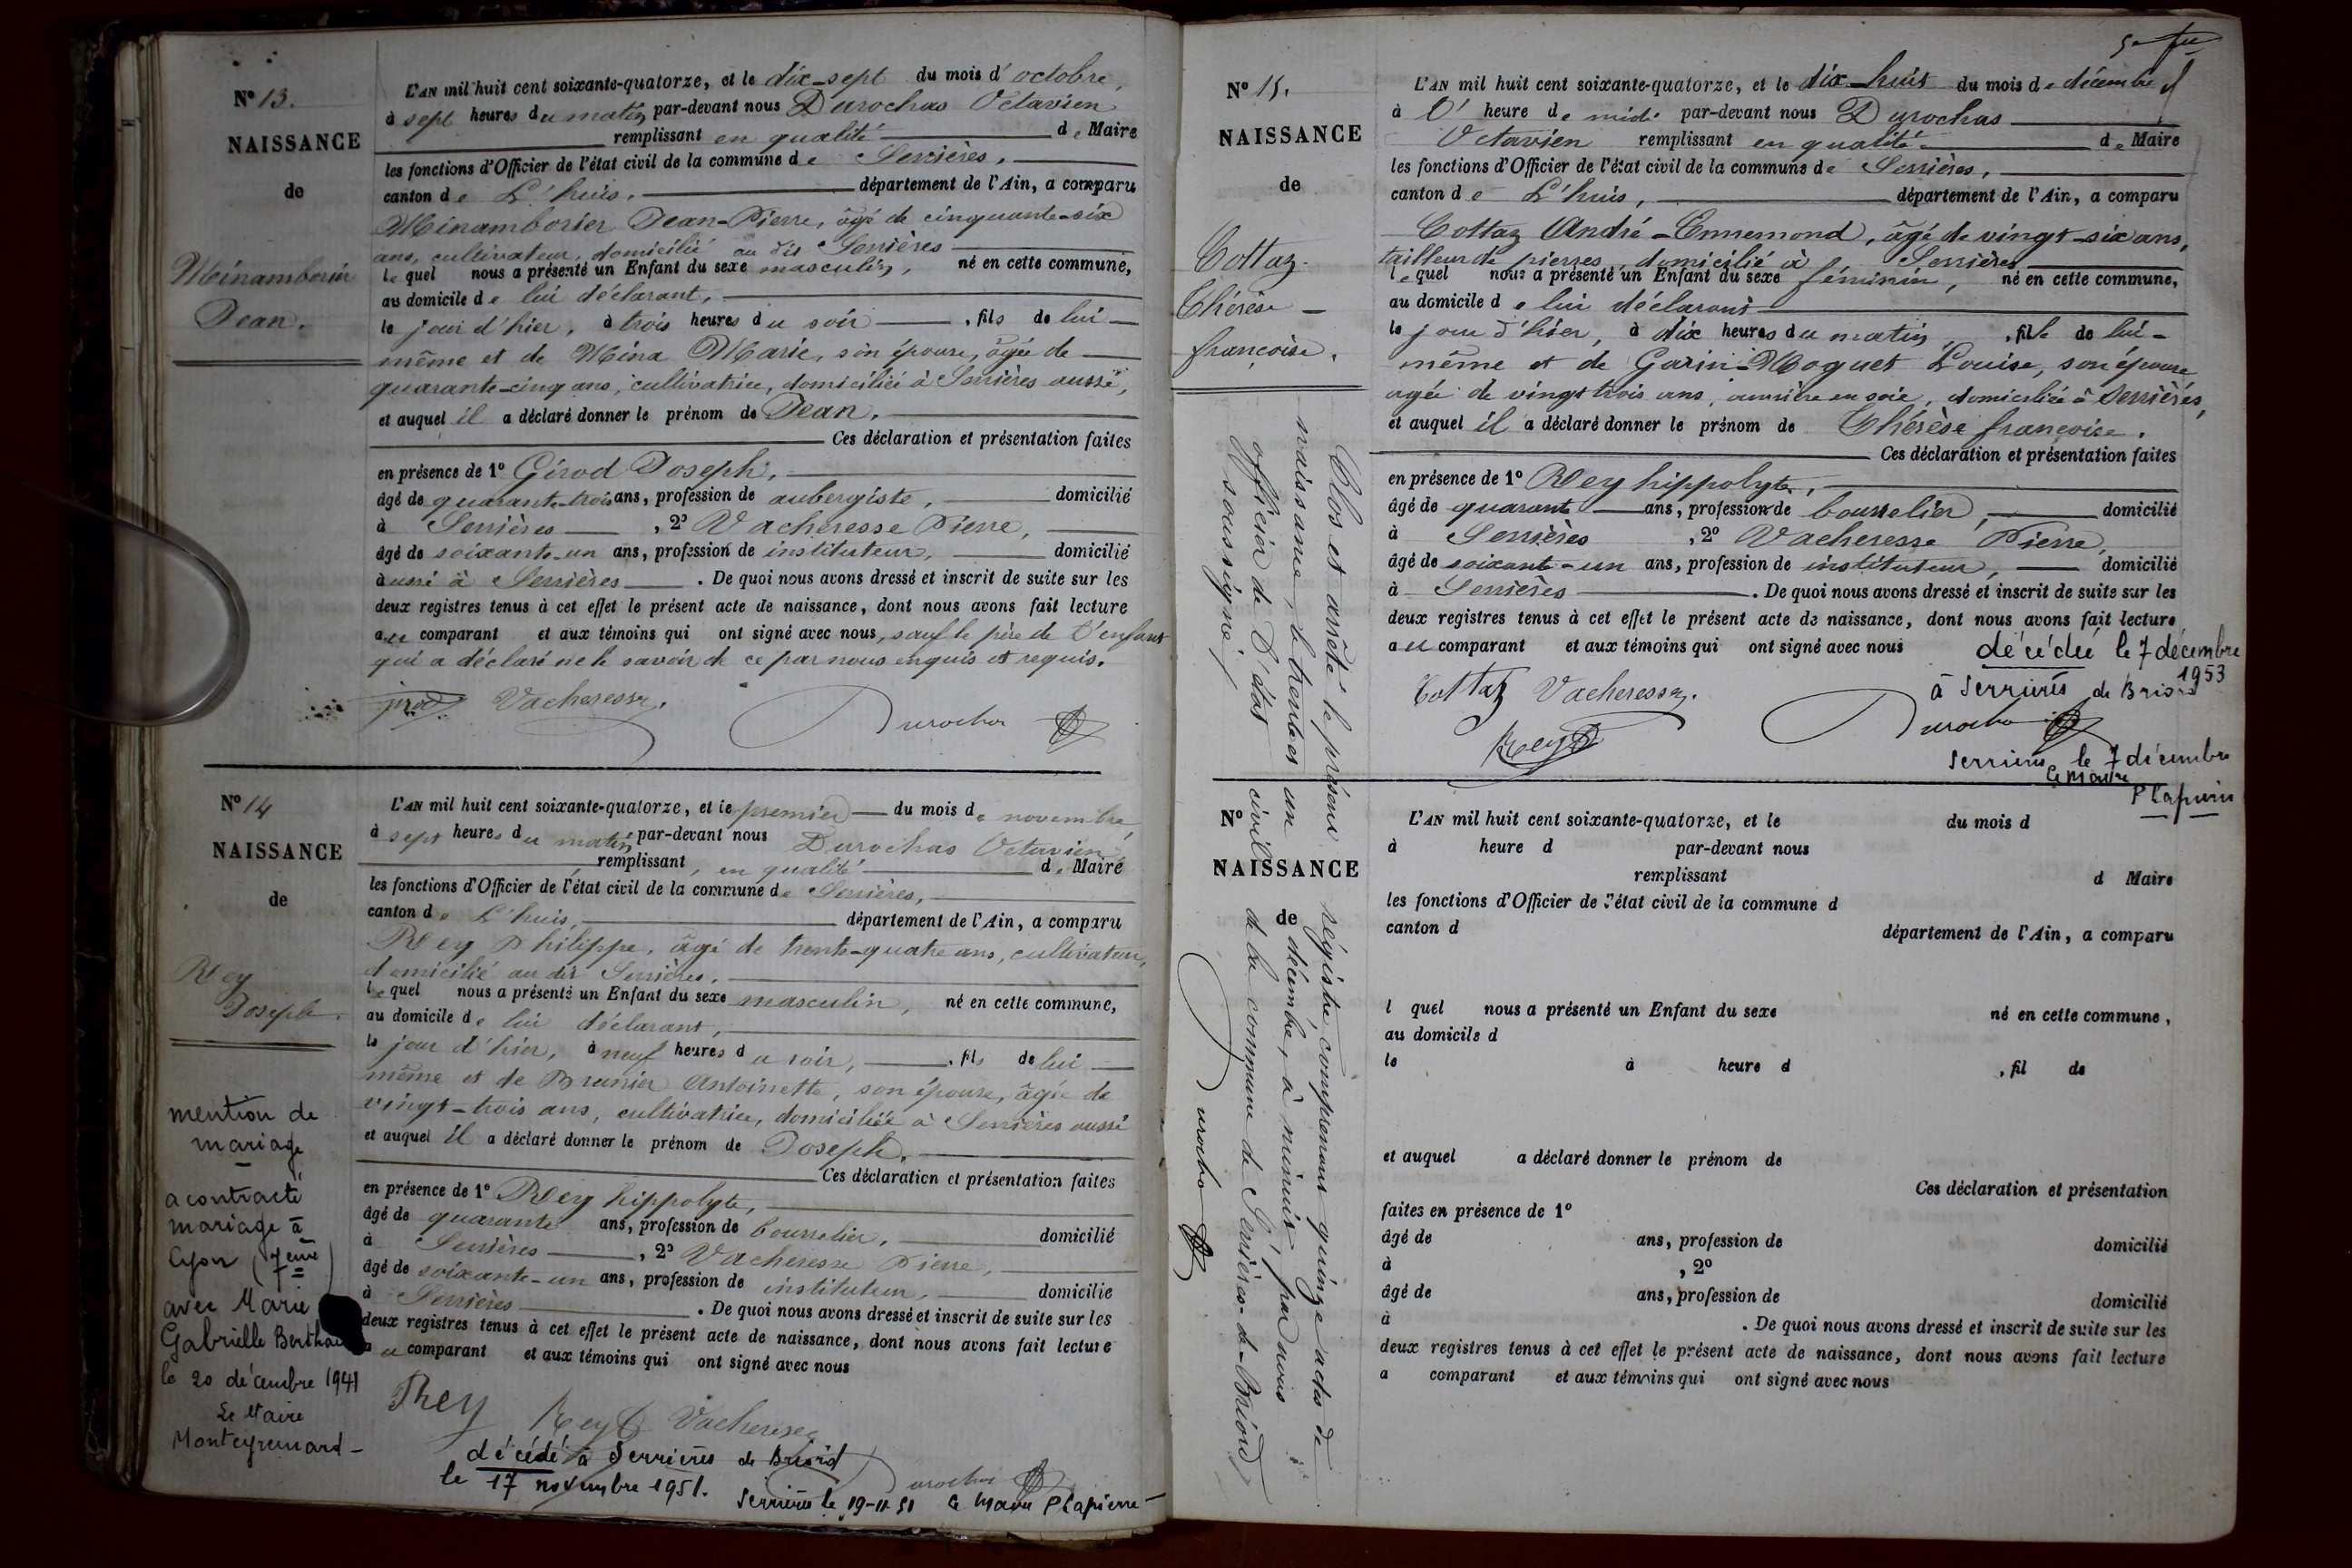 N° 13.
NAISSANCE
de
Minamborier
Jean.
L'AN mil huit cent soixante-quatorze, et le dix-sept du mois d'octobre,
à sept heures du matin, par-devant nous Durochas Octavien
remplissant en qualité de Maire
les fonctions d'Officier de l'état civil de la commune de Serrières,
canton de L'huis, département de l'Ain, a comparu
Minamborier Jean-Pierre, âgé de cinquante-six
ans, cultivateur, domicilié au dit Serrières
lequel nous a présenté un Enfant du sexe masculin, né en cette commune,
au domicile de lui déclarant,
le jour d'hier, à trois heures du soir, fils de lui
même et de Mina Marie, son épouse, âgée de
quarante-cinq ans, cultivatrice, domiciliée à Serrières aussi,
et auquel il a déclaré donner le prénom de Jean.
Ces déclaration et présentation faites
en présence de 1° Gérod Joseph,
âgé de quarante-trois ans, profession de aubergiste, domicilié
à Serrières, 2° Vacheresse Pierre,
âgé de soixante-un ans, profession de instituteur, domicilié
aussi à Serrières. De quoi nous avons dressé et inscrit de suite sur les
deux registres tenus à cet effet le présent acte de naissance, dont nous avons fait lecture
au comparant et aux témoins qui ont signé avec nous, sauf le père de l'enfant
qui a déclaré ne le savoir de ce par nous enquis et requis.
Vacheresse.
Durochas
N° 14
NAISSANCE
de
Rey
Joseph.
L'AN mil huit cent soixante-quatorze, et le premier du mois de novembre,
à sept heures du matin, par-devant nous Durochas Octavien
remplissant, en qualité de Maire
les fonctions d'Officier de l'état civil de la commune de Serrières,
canton de L'huis, département de l'Ain, a comparu
Rey Philippe, âgé de trente-quatre ans, cultivateur,
domicilié au dit Serrières,
lequel nous a présenté un Enfant du sexe masculin, né en cette commune,
au domicile de lui déclarant,
le jour d'hier, à neuf heures du soir, fils de lui
même et de Brunier Antoinette, son épouse, âgée de
vingt-trois ans, cultivatrice, domiciliée à Serrières aussi
et auquel il a déclaré donner le prénom de Joseph.
Ces déclaration et présentation faites
en présence de 1° Rey hippolyte,
âgé de quarante ans, profession de bourrelier, domicilié
à Serrières, 2° Vacheresse Pierre,
âgé de soixante-un ans, profession de instituteur, domicilié
à Serrières. De quoi nous avons dressé et inscrit de suite sur les
deux registres tenus à cet effet le présent acte de naissance, dont nous avons fait lecture
au comparant et aux témoins qui ont signé avec nous
Rey Rey Vacheresse
Durochas
décédé à Serrières de Briord
le 17 novembre 1951.
Serrières le 19-11-51 Le Maire P Lapierre
mention de
mariage
a contracté
mariage à
Lyon (7eme)
avec Marie
Gabrielle
le 20 décembre 1941
Le Maire
N° 15.
NAISSANCE
de
Cottaz
Thérèse
françoise.
L'AN mil huit cent soixante-quatorze, et le dix-huit du mois de décembre
à l' heure de midi par-devant nous Durochas
Octavien remplissant en qualité de Maire
les fonctions d'Officier de l'état civil de la commune de Serrières,
canton de L'huis, département de l'Ain, a comparu
Cottaz André-Ennemond, âgé de vingt-six ans,
tailleur de pierres, domicilié à Serrières
lequel nous a présenté un Enfant du sexe féminin, né en cette commune,
au domicile de lui déclarant
le jour d'hier, à dix heures du matin, fille de lui-
même et de Garin-Moguet Louise, son épouse
agée de vingt trois ans, ouvrière en soie, domiciliée à Serrières,
et auquel il a déclaré donner le prénom de Thérèse françoise.
Ces déclaration et présentation faites
en présence de 1° Rey hippolyte,
âgé de quarante ans, profession de bourrelier, domicilié
à Serrières, 2° Vacheresse Pierre,
âgé de soixante-un ans, profession de instituteur, domicilié
à Serrières. De quoi nous avons dressé et inscrit de suite sur les
deux registres tenus à cet effet le présent acte de naissance, dont nous avons fait lecture
au comparant et aux témoins qui ont signé avec nous
Cottaz Vacheresse.
Rey
Durochas
décédée le 7 décembre
1953
à Serrières de Briord
Serrières le 7 décembre
Le Maire
P Lapierre
Clos et arrêté le présent régistre, comprenant quinze actes de
naissance, le trente et un décembre, à minuit, par nous
officier de l'état civil de la commune de Serrières-de-Briord
soussigné,
Durochas
N°
NAISSANCE
de
L'AN mil huit cent soixante-quatorze, et le du mois d
à heure d par-devant nous
remplissant d Maire
les fonctions d'Officier de l'état civil de la commune d
canton d département de l'Ain, a comparu
l quel nous a présenté un Enfant du sexe né en cette commune,
au domicile d
le à heure d , fil de
et auquel a déclaré donner le prénom de
Ces déclaration et présentation
faites en présence de 1°
âgé de ans, profession de domicilié
à , 2°
âgé de ans, profession de domicilié
à . De quoi nous avons dressé et inscrit de suite sur les
deux registres tenus à cet effet le présent acte de naissance, dont nous avons fait lecture
a comparant et aux témoins qui ont signé avec nous